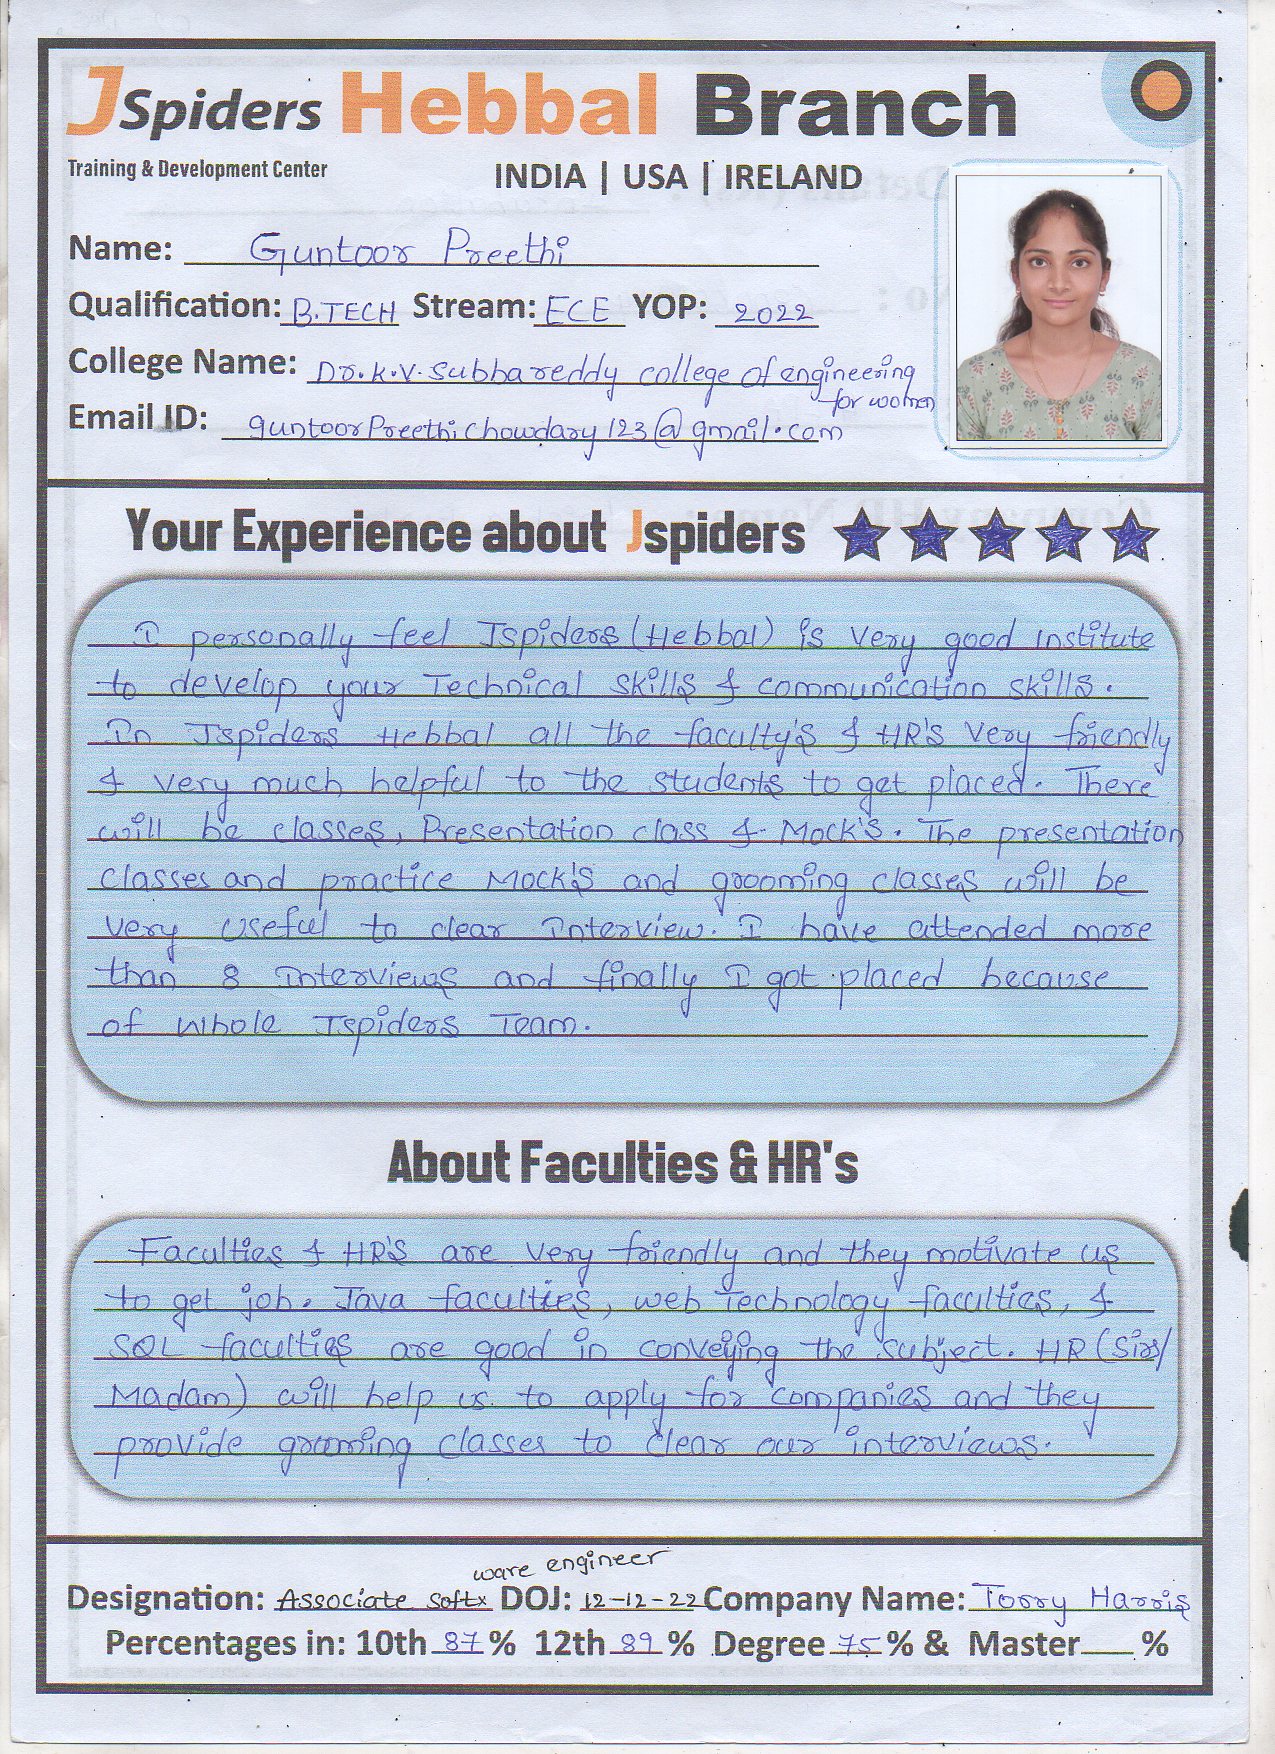 JSpiders Hebbal Branch
Training & Development Center
INDIA | USA | IRELAND
Name: Guntoor Preethi
Qualification: B.TECH Stream: ECE YOP: 2022
College Name: Dr.K.V.Subbareddy college of engineering
for women
Email ID: guntoorPreethichowdary123@gmail.com
Your Experience about Jspiders
I personally feel Jspiders (Hebbal) is very good institute
to develop your Technical skills & communication skills.
In Jspiders Hebbal all the faculty's & HR's very friendly
& very much helpful to the students to get placed. There
will be classes, Presentation class & Mock's. The presentation
classes and practice Mock's and grooming classes will be
very useful to clear Interview. I have attended more
than 8 interviews and finally I got placed because
of whole Jspiders Team.
About Faculties & HR's
Faculties & HR's are very friendly and they motivate us
to get job. Java faculties, web Technology faculties, &
SQL faculties are good in conveying the subject. HR (Sirs/
Madam) will help us to apply for companies and they
provide grooming classes to clear our interviews.
ware engineer
Designation: Associate Soft DOJ: 12-12-22 Company Name: Torry Harris
Percentages in: 10th 87 % 12th 89 % Degree 75 % & Master %